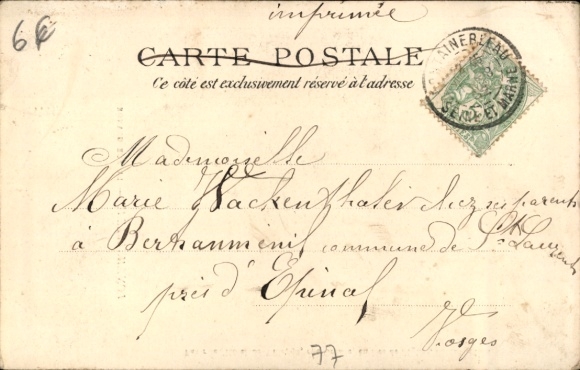 imprimée
6€
CARTE POSTALE
Ce côté est exclusivement réservé à l'adresse
SEINE ET MARNE
Mademoiselle
Marie Wackenthaler chez ses parents
à Benhauménil commune de St Laurent
près d'Epinal
Vosges
77